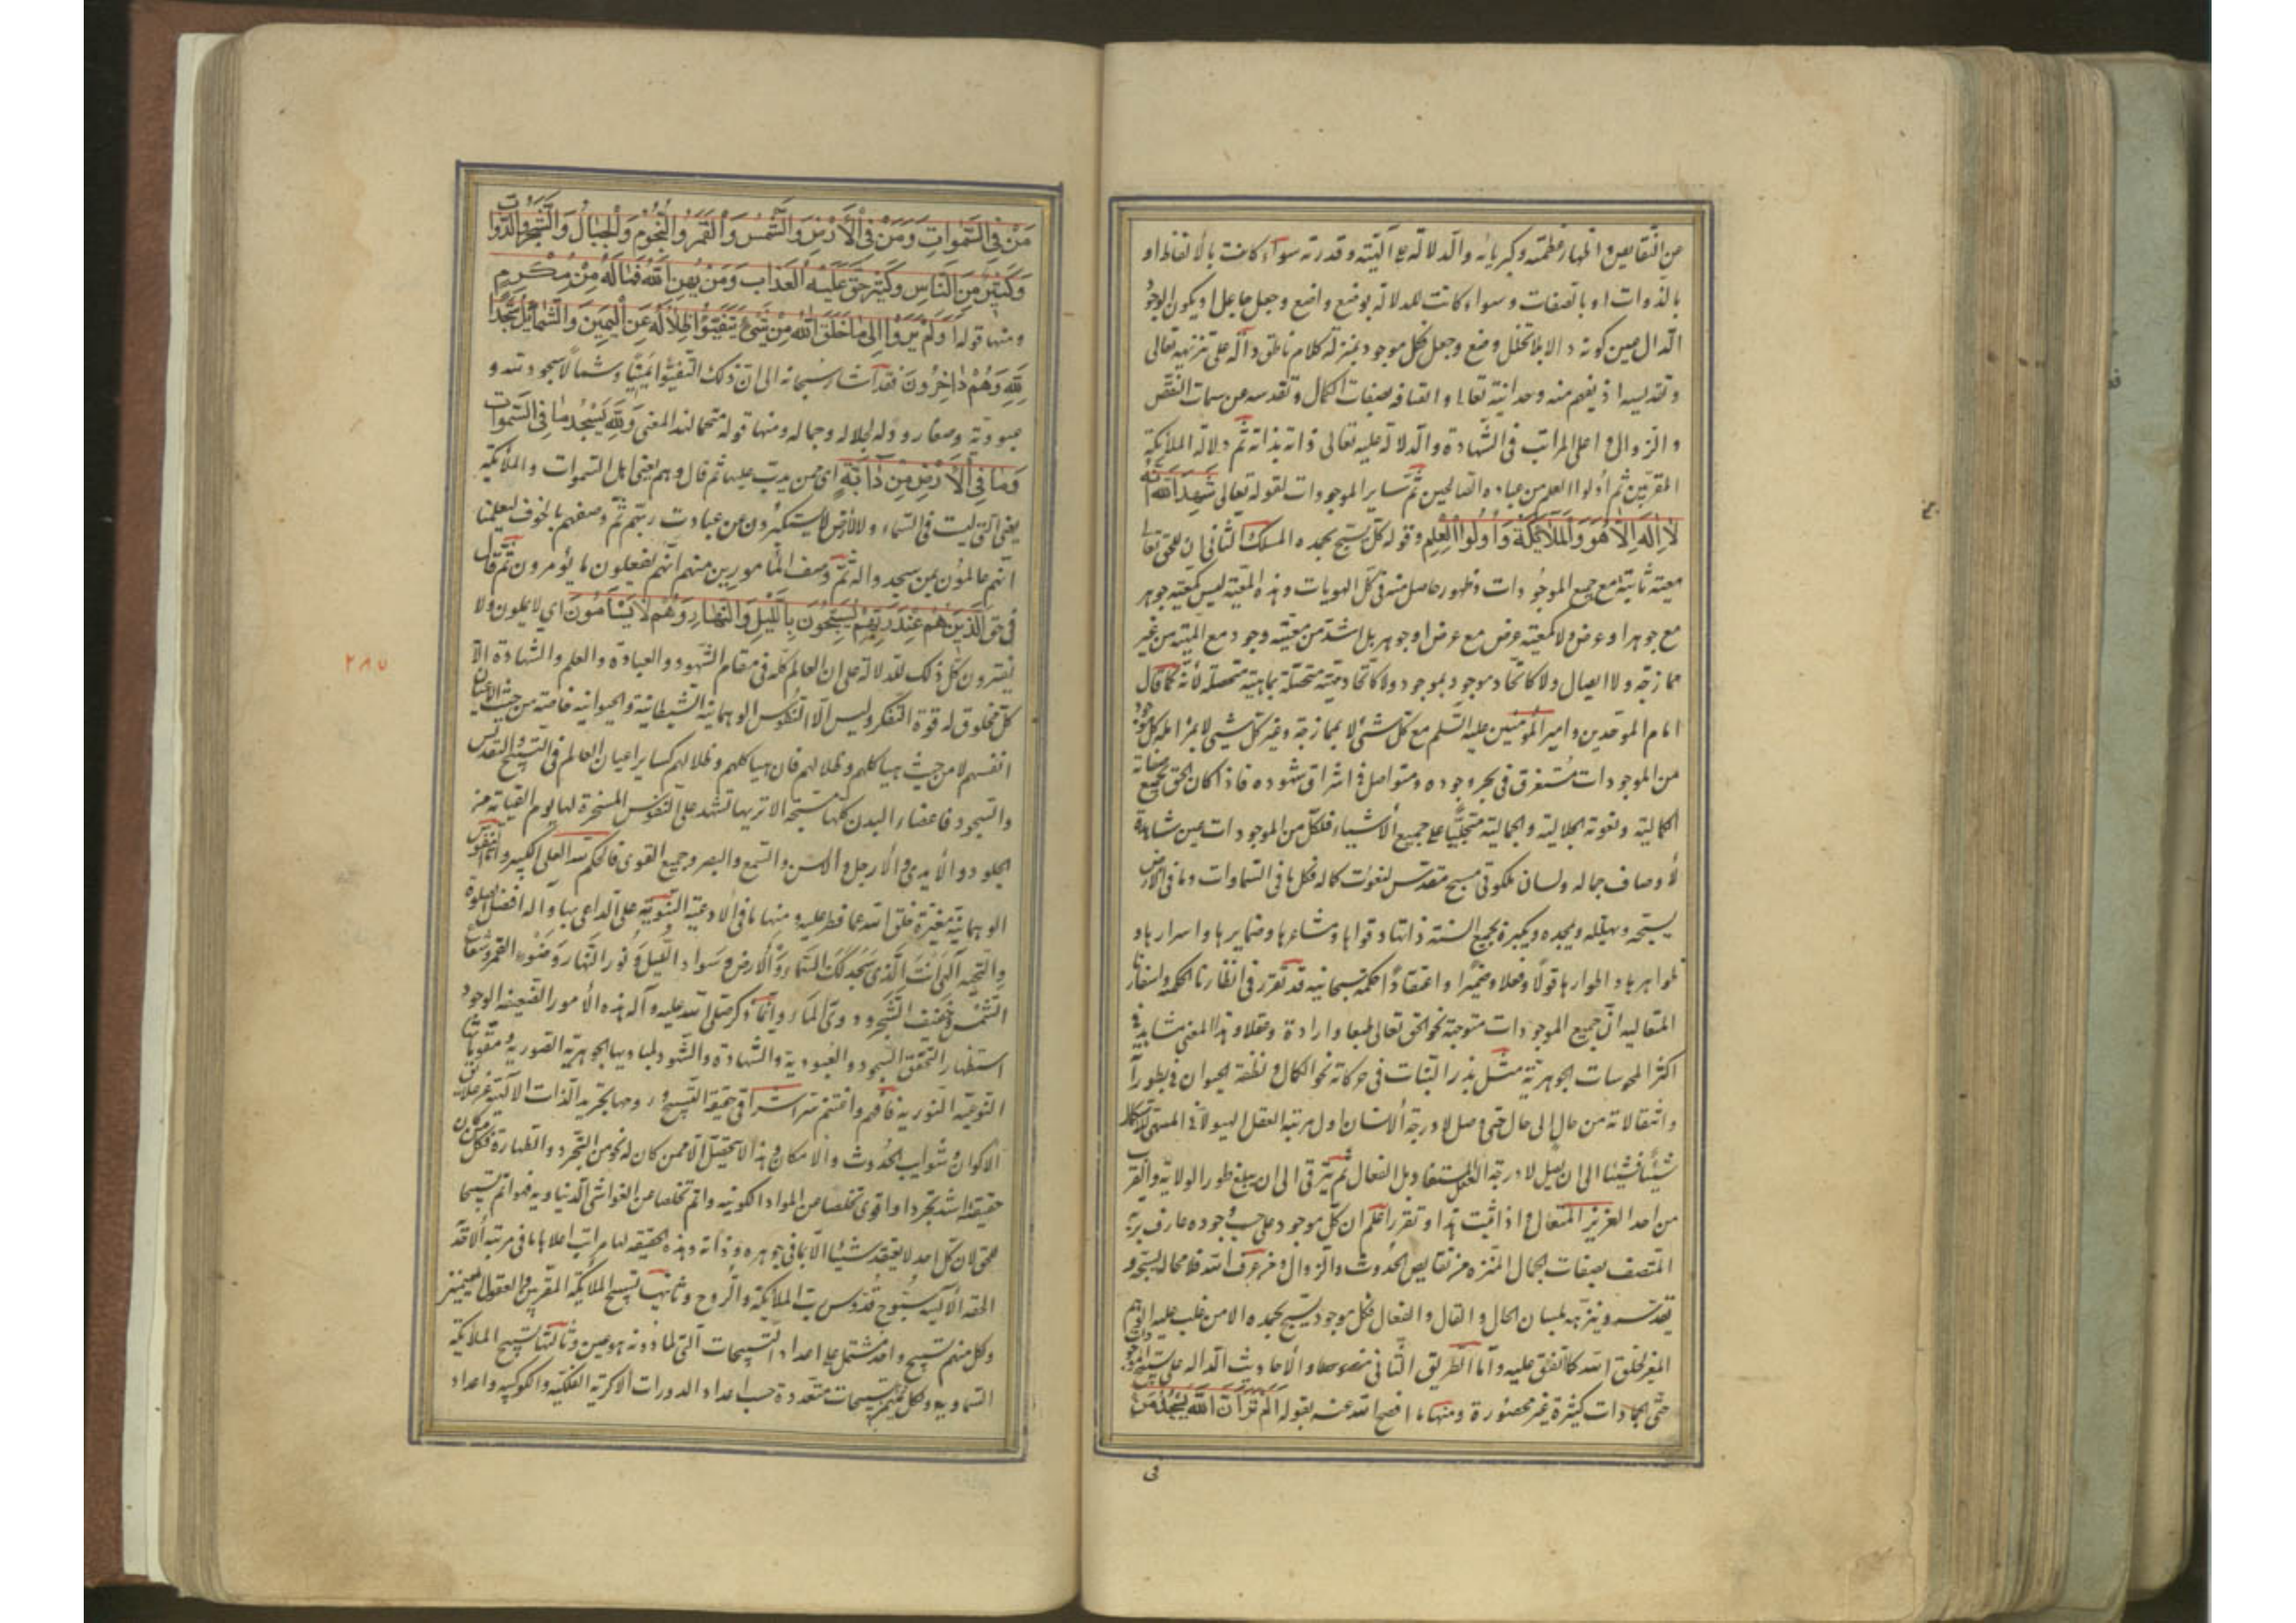 من النقايص واظهار عظمته وكبريائه والدلالة على آلهيته وقدرته سواء كانت بالألفاظ او
بالذوات او بالصفات وسواء كانت الدلالة بوضع واضع وجعل جاعل او يكون الوجود
الدال عين كونه دالا بلا تخلل وضع وجعل فكل موجود بمنزلة كلام ناطق دالة على تنزيهه تعالى
وتقديسه اذ يفهم منه وحدانيته تعالى واتصافه بصفات الكمال وتقدسه عن سمات النقص
والزوال واعلى المراتب فى الشهادة والدلالة عليه تعالى ذاته بذاته ثم دلالة الملائكة
المقربين ثم أولوا العلم من عباده الصالحين ثم ساير الموجودات لقوله تعالى شَهِدَ اللّٰهُ أَنَّهُ
لَا إِلٰهَ إِلَّا هُوَ وَالْمَلَائِكَةُ وَأُولُوا الْعِلْمِ وقوله كل يسبح بحمده المسلك الثانى ان للحق تعالى
معية ثابتة مع جميع الموجودات وظهور حاصل منه فى كل الهويات وهذه المعية ليس كمعية جوهر
مع جوهر او عرض ولا كمعية عرض مع عرض او جوهر بل اشد من معية وجود مع المهية من غير
ممازجة ولا ايصال ولا كاتحاد موجود بموجود ولا كاتحاد مهية متحصلة بماهية متحصلة لأنه كما قال
امام الموحدين وامير المؤمنين عليه السلم مع كل شئ لا بممازجة وغير كل شئ لا بمزايلة كل موجود
من الموجودات مستغرق فى بحر وجوده ومتواصل فى اشراق شهوده فاذا كان الحق بجميع صفاته
الكمالية ونعوته الجلالية والجمالية متجليا على جميع الأشياء فلكل من الموجودات عين شاهدة
لأوصاف جماله ولسان ملكوتى مسبح مقدس لنعوت كماله فكل ما فى السماوات وما فى الأرض
يسبحه ويهلله ويمجده ويكبره بجميع السنة ذاتها وقواها ومشاعرها وضمايرها واسرارها و
ظواهرها واطوارها قولا وفعلا وضميرا واعتقادا حكمة سبحانية قد تقرر فى انظارنا الحكمية واسفارنا
المتعالية ان جميع الموجودات متوجهة نحو الحق تعالى طبعا وارادة وعقلا وهذا المعنى مشاهد فى
اكثر المحسوسات الجوهرية مثل بذر النبات فى حركاته نحو الكمال ونطفة الحيوان فى تطوراته
وانتقالاته من حال الى حال حتى وصل لا درجة الانسان اول مرتبة العقل الهيولانى المستهى للاستكمال
شيئا فشيئا الى ان يصل لا درجة العقل المستفاد وبل الفعال ثم يترقى الى ان يبلغ طور الولاية والقرب
من احد العزيز المتعال واذا ثبت هذا وتقرر اعلم ان كل موجود على حسب وجوده عارف بربه
المتصف بصفات الجمال المنزه من نقايص الحدوث والزوال ومن عرف الله فلا محالة يسبحه و
يقدسه وينزهه بلسان الحال والقال والفعال فكل موجود يسبح بحمده الا من غلب عليه الوهم
المغير لخلق الله كما اتفق عليه وأما الطريق الثانى فنصوصها والأحاديث الدالة على تسبيح الموجودات
حتى الجمادات كثيرة غير محصورة ومنها ما افصح الله عنه بقوله أَلَمْ تَرَ أَنَّ اللّٰهَ يَسْجُدُ مَنْ
فى
مَنْ فِى السَّمٰوَاتِ وَمَنْ فِى الْأَرْضِ وَالشَّمْسُ وَالْقَمَرُ وَالنُّجُومُ وَالْجِبَالُ وَالشَّجَرُ وَالدَّوَابُّ
وَكَثِيرٌ مِنَ النَّاسِ وَكَثِيرٌ حَقَّ عَلَيْهِ الْعَذَابُ وَمَنْ يُهِنِ اللّٰهُ فَمَا لَهُ مِنْ مُكْرِمٍ
ومنها قوله أَوَلَمْ يَرَوْا إِلَى مَا خَلَقَ اللّٰهُ مِنْ شَيْءٍ يَتَفَيَّؤُا ظِلَالُهُ عَنِ الْيَمِينِ وَالشَّمَائِلِ سُجَّدًا
لِلّٰهِ وَهُمْ دَاخِرُونَ فقد اشار سبحانه الى ان ذلك التفيؤا يمينا وشمالا سجود لله و
عبودية وصغار وذلة لجلاله وجماله ومنها قوله متحما لهذا المعنى وَلِلّٰهِ يَسْجُدُ مَا فِى السَّمٰوَاتِ
وَمَا فِى الْأَرْضِ مِنْ دَابَّةٍ اى ممن يدب عليها ثم قال وهم يعنى اهل السموات والملائكة
يعنى التى ليست فى السماء ولا الأرض لا يستكبرون عن عبادت ربهم ثم وصفهم بالخوف ليعلمنا
انهم عالمون بمن سجدوا له ثم وصف المأمورين منهم انهم يفعلون ما يؤمرون ثم قال
فى حق الَّذِينَ هُمْ عِنْدَ رَبِّهِمْ يُسَبِّحُونَ بِاللَّيْلِ وَالنَّهَارِ وَهُمْ لَا يَسْأَمُونَ اى لا يملون ولا
يفترون كل ذلك للدلالة على ان العالم كله فى مقام الشهود والعبادة والعلم والشهادة الا
كل مخلوق له قوة التفكر وليس الا النفوس الوهمانية الشيطانية والحيوانية خاصة من حيث اعيان
انفسهم لا من حيث هياكلهم وظلالهم فان هياكلهم وظلالهم كساير اعيان العالم فى التسبيح والتقديس
والسجود فاعضاء البدن كلها مسبحة الا تريها تشهد على النفوس المسخرة لها يوم القيامة من
الجلود والأيدى والأرجل والألسن والسمع والبصر وجميع القوى فالحكم لله العلى الكبير وأما النفوس
الوهمانية مغيرة خلق الله عما فطر عليه ومنها ما فى الادعية النبوية على الداعى بها وآله افضل الصلوة
والتحية الهى انت الذى سجد لك السماء والأرض وسواد الليل ونور النهار وضوء القمر وشعاع
الشمس وخفيف الشجر ودوى الماء وانما ذكر صلى الله عليه وآله هذه الأمور الضعيفة الوجود
استظهارا لتحقق السجود والعبودية والشهادة والشهود لمباديها الجوهرية الصورية ومقوماتها
النوعية النورية فافهم واغتنم ستر اشراقى حقيقة التسبيح وروحها تجريد الذات الالهية عن علايق
الاكوان وشوايب الحدوث والامكان وهذا لا يتحقق الا ممن كان له نحو من التجرد والطهارة فكل من كان
حقيقته اشد تجردا واقوى تخلصا من المواد الكونية واتم تخلصا من الغواشى الدنياوية فهو اتم تسبيحا
للحق لان كل احد لا يعتقد شيئا الا بما فى جوهره وذاته وهذه الحقيقة لها مراتب اعلاها ما فى مرتبة الأحدية
الحقة الألهية سبوح قدوس رب الملائكة والروح وثانيها تسبيح الملائكة المقربين والعقول المهيمين
وكل منهم تسبيح واحد مشتمل على اعداد التسبيحات التى لما دونه هو عين وثالثها تسبيح الملائكة
السماوية ولكل منهم تسبيحات متعددة حسب اعداد الدورات الاكرية الفلكية والكوكبية واعداد
٢٨٥